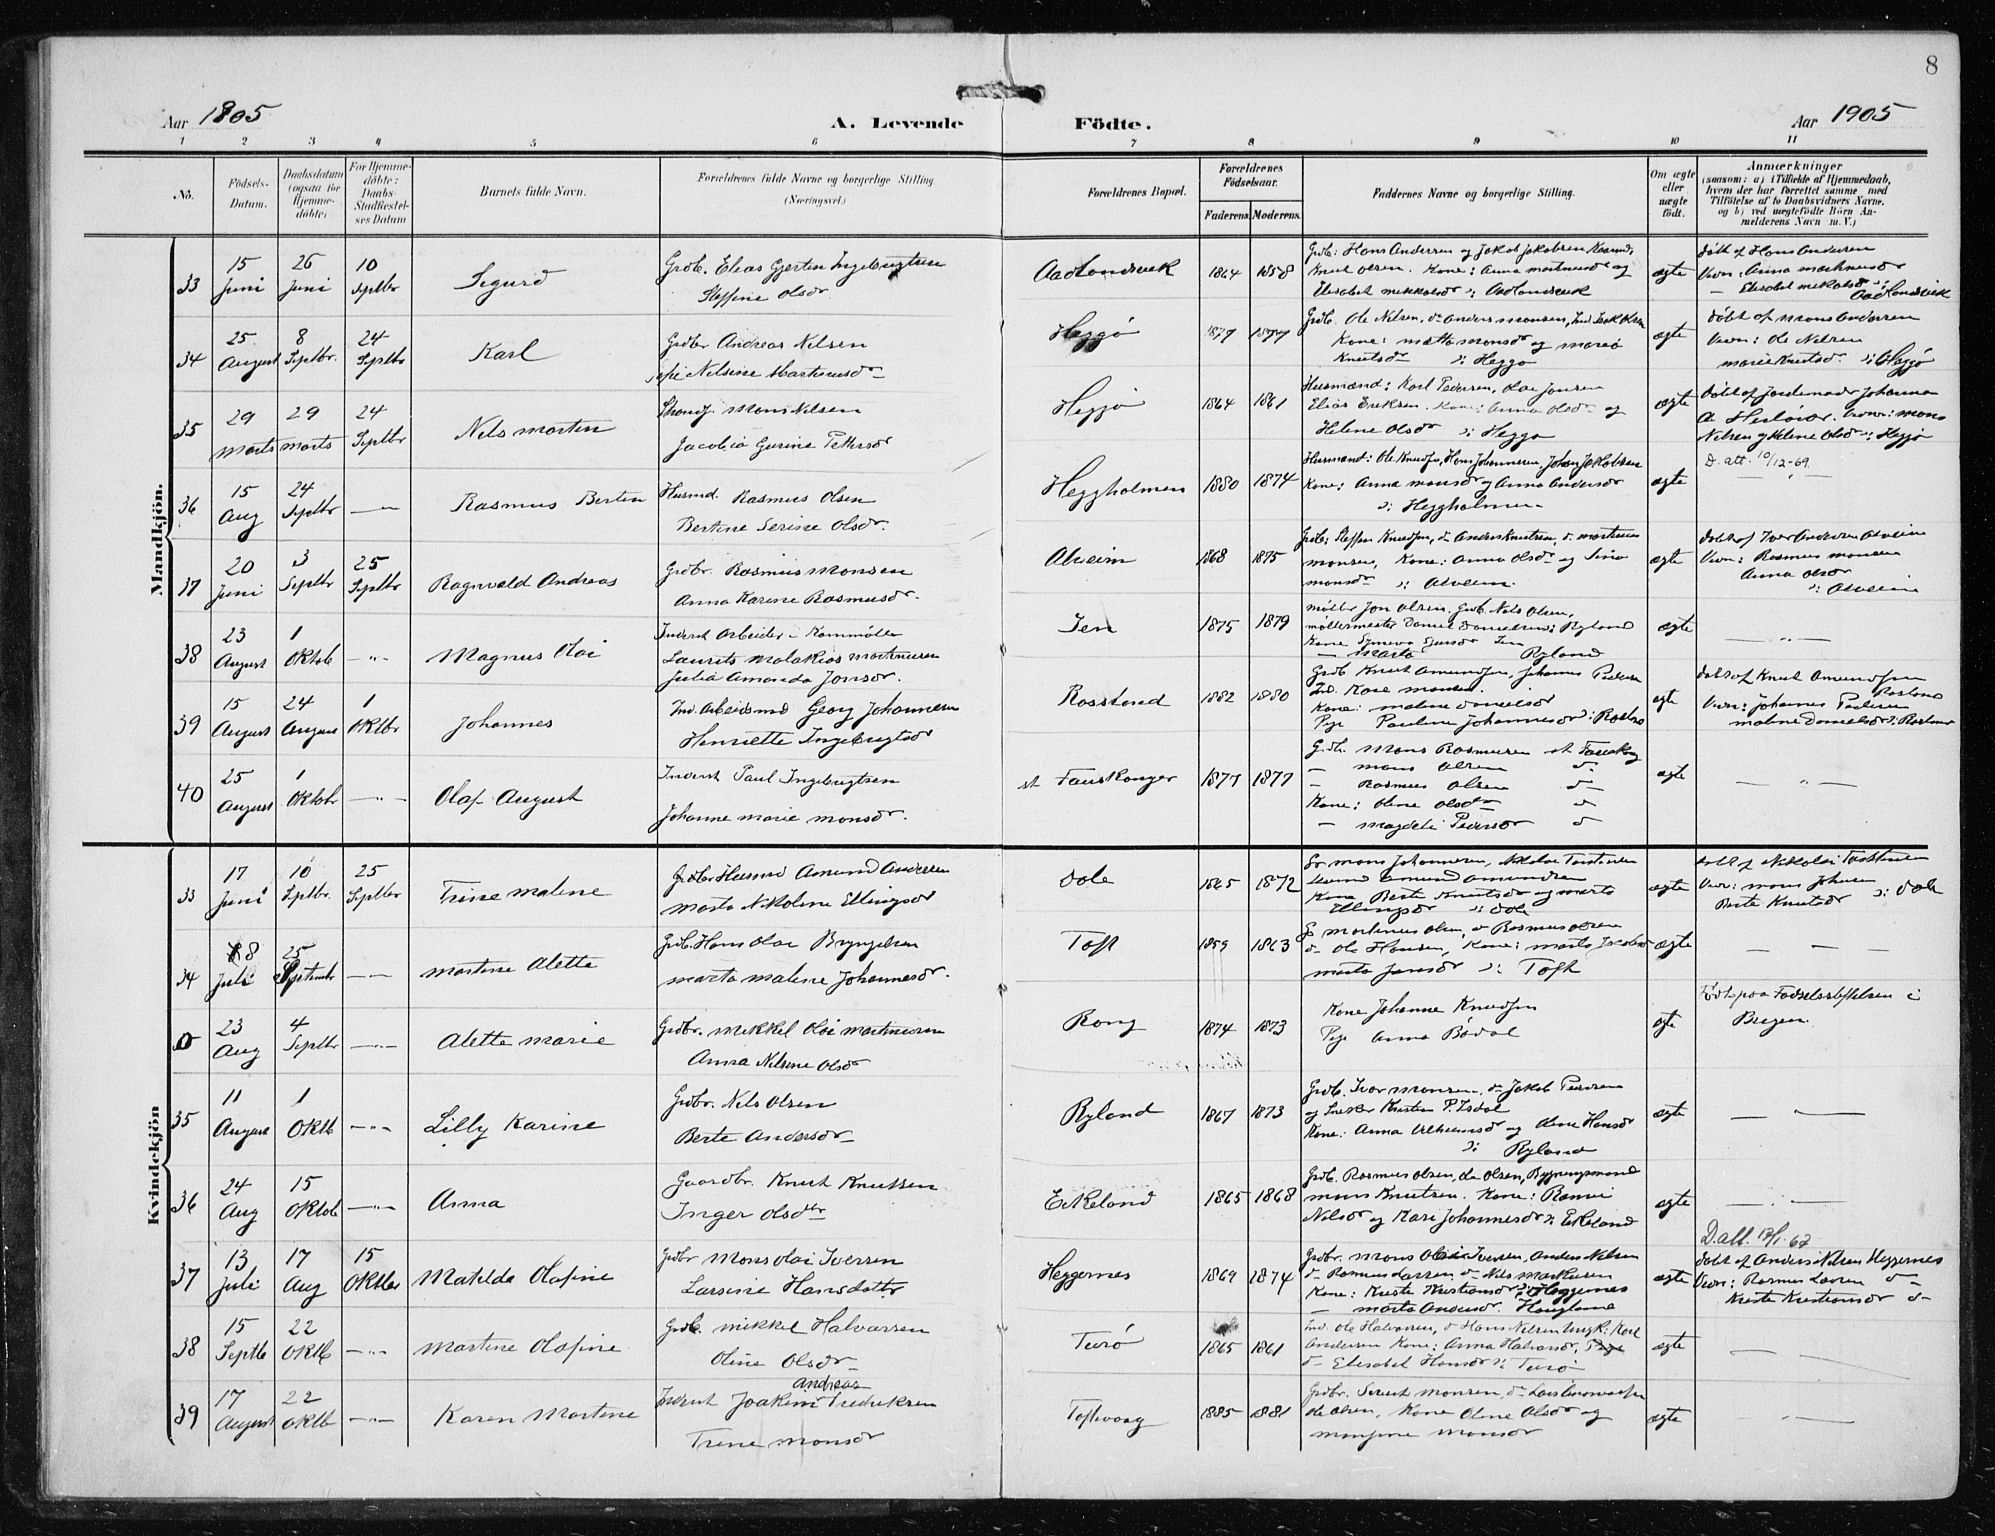 8
Aar 1805 A. Levende Födte. Aar 1905
1 2 3 4 5 6 7 8 9 10 11
No. Födsels-Datum. Daabsdatum (ogsaa for Hjemme-döbte) For Hjemme-döbte: Daabs-Stadfæstel-ses Datum Barnets fulde Navn. Forældrenes fulde Navne og borgerlige Stilling (Næringsvei.) Forældrenes Bopæl. Forældrenes Födselsaar. Faderens. Moderens. Faddernes Navne og borgerlige Stilling. Om ægte eller uægte födt. Anmærkninger (saasom: a) i Tilfælde af Hjemmedaab, hvem der har forrettet samme med Tilföielse af to Daabsvidners Navne, og b) ved uægtefödte Börn An-melderens Navn m. V.)
Mandkjön.
33 15 Juni 26 Juni 10 Septbr Sigurd Grdb. Elias Gjertin Ingebrigtsen
Steffine Olsdr. Aadlandsvik 1864 1858 Grdb: Hans Andersen og Jakob Jakobsen
Knut Olsen. Kone: Anna Martinusdr og
Elisabet Mikkelsdr : Aadlandsvik ægte Döbt af Hans Andersen
Vidn: Anna Martinusdr
Elisabet Mikalsdr : Aadlandsvik
34 25 August 8 Septbr. 24 Septbr Karl Grdbr Andreas Nilsen
Nilsine Martinusdr Heggö 1877 1877 Grdb. Ole Nilsen, do Anders Monsen, Ind. Isak Olsen
Kone: Matta Monsdr og Maria
Knutsdr : Heggö ægte Döbt af Mons Andersen
Vidn: Ole Nilsen
Marie Knutsdr. : Heggö
35 29 Marts 29 Marts 24 Septbr Nils Morten Mons Nilsen
Jacobia Gurine Pettersdr Heggö 1864 1861 Husmænd: Karl Pedersen, Olai Jonsen
Elias Eriksen. Kone: Anna Olsdr og
Helene Olsdr : Heggö ægte Döbt af Jordemoder Johanna
Vidn: Mons
Nilsen og Helene Olsdr : Heggö
D. att. 10/12-69.
36 15 Aug 24 Septbr — Rasmus Bertin Husmd. Rasmus Olsen
Bertine Serine Olsdr. Heggholmen 1880 1874 Husmænd: Ole Knudsen, Hans Johannesen, Johan Jakobsen
Kone: Anna Monsdr og Anna Andersdr
: Heggholmen ægte — " —
37 20 Juni 3 Septbr 25 Septbr Ragnvald Andreas Grdbr. Rasmus Monsen
Anna Karine Rasmusdr. Alveim 1868 1875 Grdb: Steffen Knudsen, do Anders Knutsen, do Martinus
Monsen, Kone: Anna Olsdr og Sina
Monsdr : Alveim. ægte Döbt af Iver Andersen Alveim
Vidn: Rasmus Monsen
Anna Olsdr
: Alveim
38 23 August 1 Oktob — " — Magnus Olai Inderst Arbeider i Kornmölle
Laurits Malakias Martinusen
Julia Amanda Jonsdr. Isen 1875 1879 Möller Jon Olsen. Grdb. Nils Olsen,
Möllermester Daniel Danielsen : Ryland
Kone Synneva
— Marta Ryland ægte — " —
39 15 August 24 August 1 Oktbr Johannes Ind. Arbeidsmd Georg Johannesen
Henriette Ingebrigtsdr Rossland 1882 1880 Grdb Knut Amundsen, Johannes Pedersen
Ind. Kone Monsen.
Kone: Malene Danielsdr
Pige Pauline Johannesdr : Rosland ægte Döbt af Knut Amundsen
Rosland
Vidn: Johannes Pedersen
Malene Danielsdr : Rosland
40 25 August 1 Oktobr — " — Olaf August Inderst Paul Ingebrigtsen
Johanne Marie Monsdr. st Fauskanger 1877 1877 Grdb. Mons Rasmusen st Fausk
— Mons Olsen do
— Rasmus Olsen do
Kone: Oline Olsdr do
— Magdeli Pedersdr do ægte — " —
Kvindekjön
33 17 Juni 10 Septbr. 25 Septbr Trine Malene Grdbr Husmd Amund Andersen
Marta Nikoline Ellingsdr Dole 1865 1872 Gr Mons Johannesen, Nikolai Torstensen
Husmd Amund Amundsen
Kone Berte Knutsdr og Marta
Ellingsdr : Dole ægte Döbt af Nikolai Torstensen
Vidn: Mons Johansen
Berte Knutsdr : Dole
34 8 Juli 25 Septembr — " — Martine Alette Grdb. Hans Olai Bryngelsen
Marta Malene Johannesdr. Toft 1859 1863 G Martinus Olsen, do Rasmus Olsen
do Ole Hansen, Kone: Marta Jacobsdr
Marta Jansdr : Toft ægte — — —
0 23 Aug 4 Septbr — " — Alette Marie Grdbr. Mikkel Olai Martinusen
Anna Nilsine Olsdr Rong 1874 1873 Kone Johanne Knudsen
Pige Anna Bödal ægte Födt paa Födselsstiftelsen i
Bergen.
35 11 August 1 Oktb — " — Lilly Karine Grdbr. Nils Olsen
Berte Andersdr Ryland 1867 1873 Grdb. Iver Monsen. do Jakob Pedersen
og Kristen P. Isdal
Kone: Anna og Oline Hansdr
: Ryland ægte — " —
36 24 Aug 15 Oktob — " — Anna Gaardbr. Knut Knutsen
Inger Olsdtr Eikeland 1865 1868 Grdb. Rasmus Olsen, Bygningsmand
Mons Knutsen. Kone: Ranni
Nilsdr og Kari Johannesdr : Eikeland ægte — " —
37 13 Juli 17 Aug 15 Oktbr Matilda Olafine Grdbr Mons Olai Iversen
Larsine Hansdatter Heggernes 1869 1874 Grdbr. Mons Olai Iversen, Anders Nilsen
do Rasmus Larsen do Nils Markusen
Kone: Kriste Kristiansdr : Heggernes
— Marta Andersdr. Haugland ægte D. att. 12/1-67
Döbt af Anders Nilsen Heggernes
Vidn: Rasmus Larsen do
Kriste Kristiansdr do
38 15 Septb 22 Oktb — " — Martine Olafine Grdb. Mikkel Halvarsen
Oline Olsdr Turö 1865 1861 Ind. Ole Halvorsen, do Hans Nilsen Ungk: Karl
Andersen Kone: Anna Halvorsdr, Pige
do Elisabet Hansdr : Turö ægte — " —
39 17 August 22 Oktb — " — Karen Martine Inderst Joakim Andreas Fredriksen
Trine Monsdr Toftevaag 1885 1881 Grdbr. Sivert Monsen, do Lars
Ole Olsen, Kone Oline Olsdr og
Monsine Monsdr ægte — " —